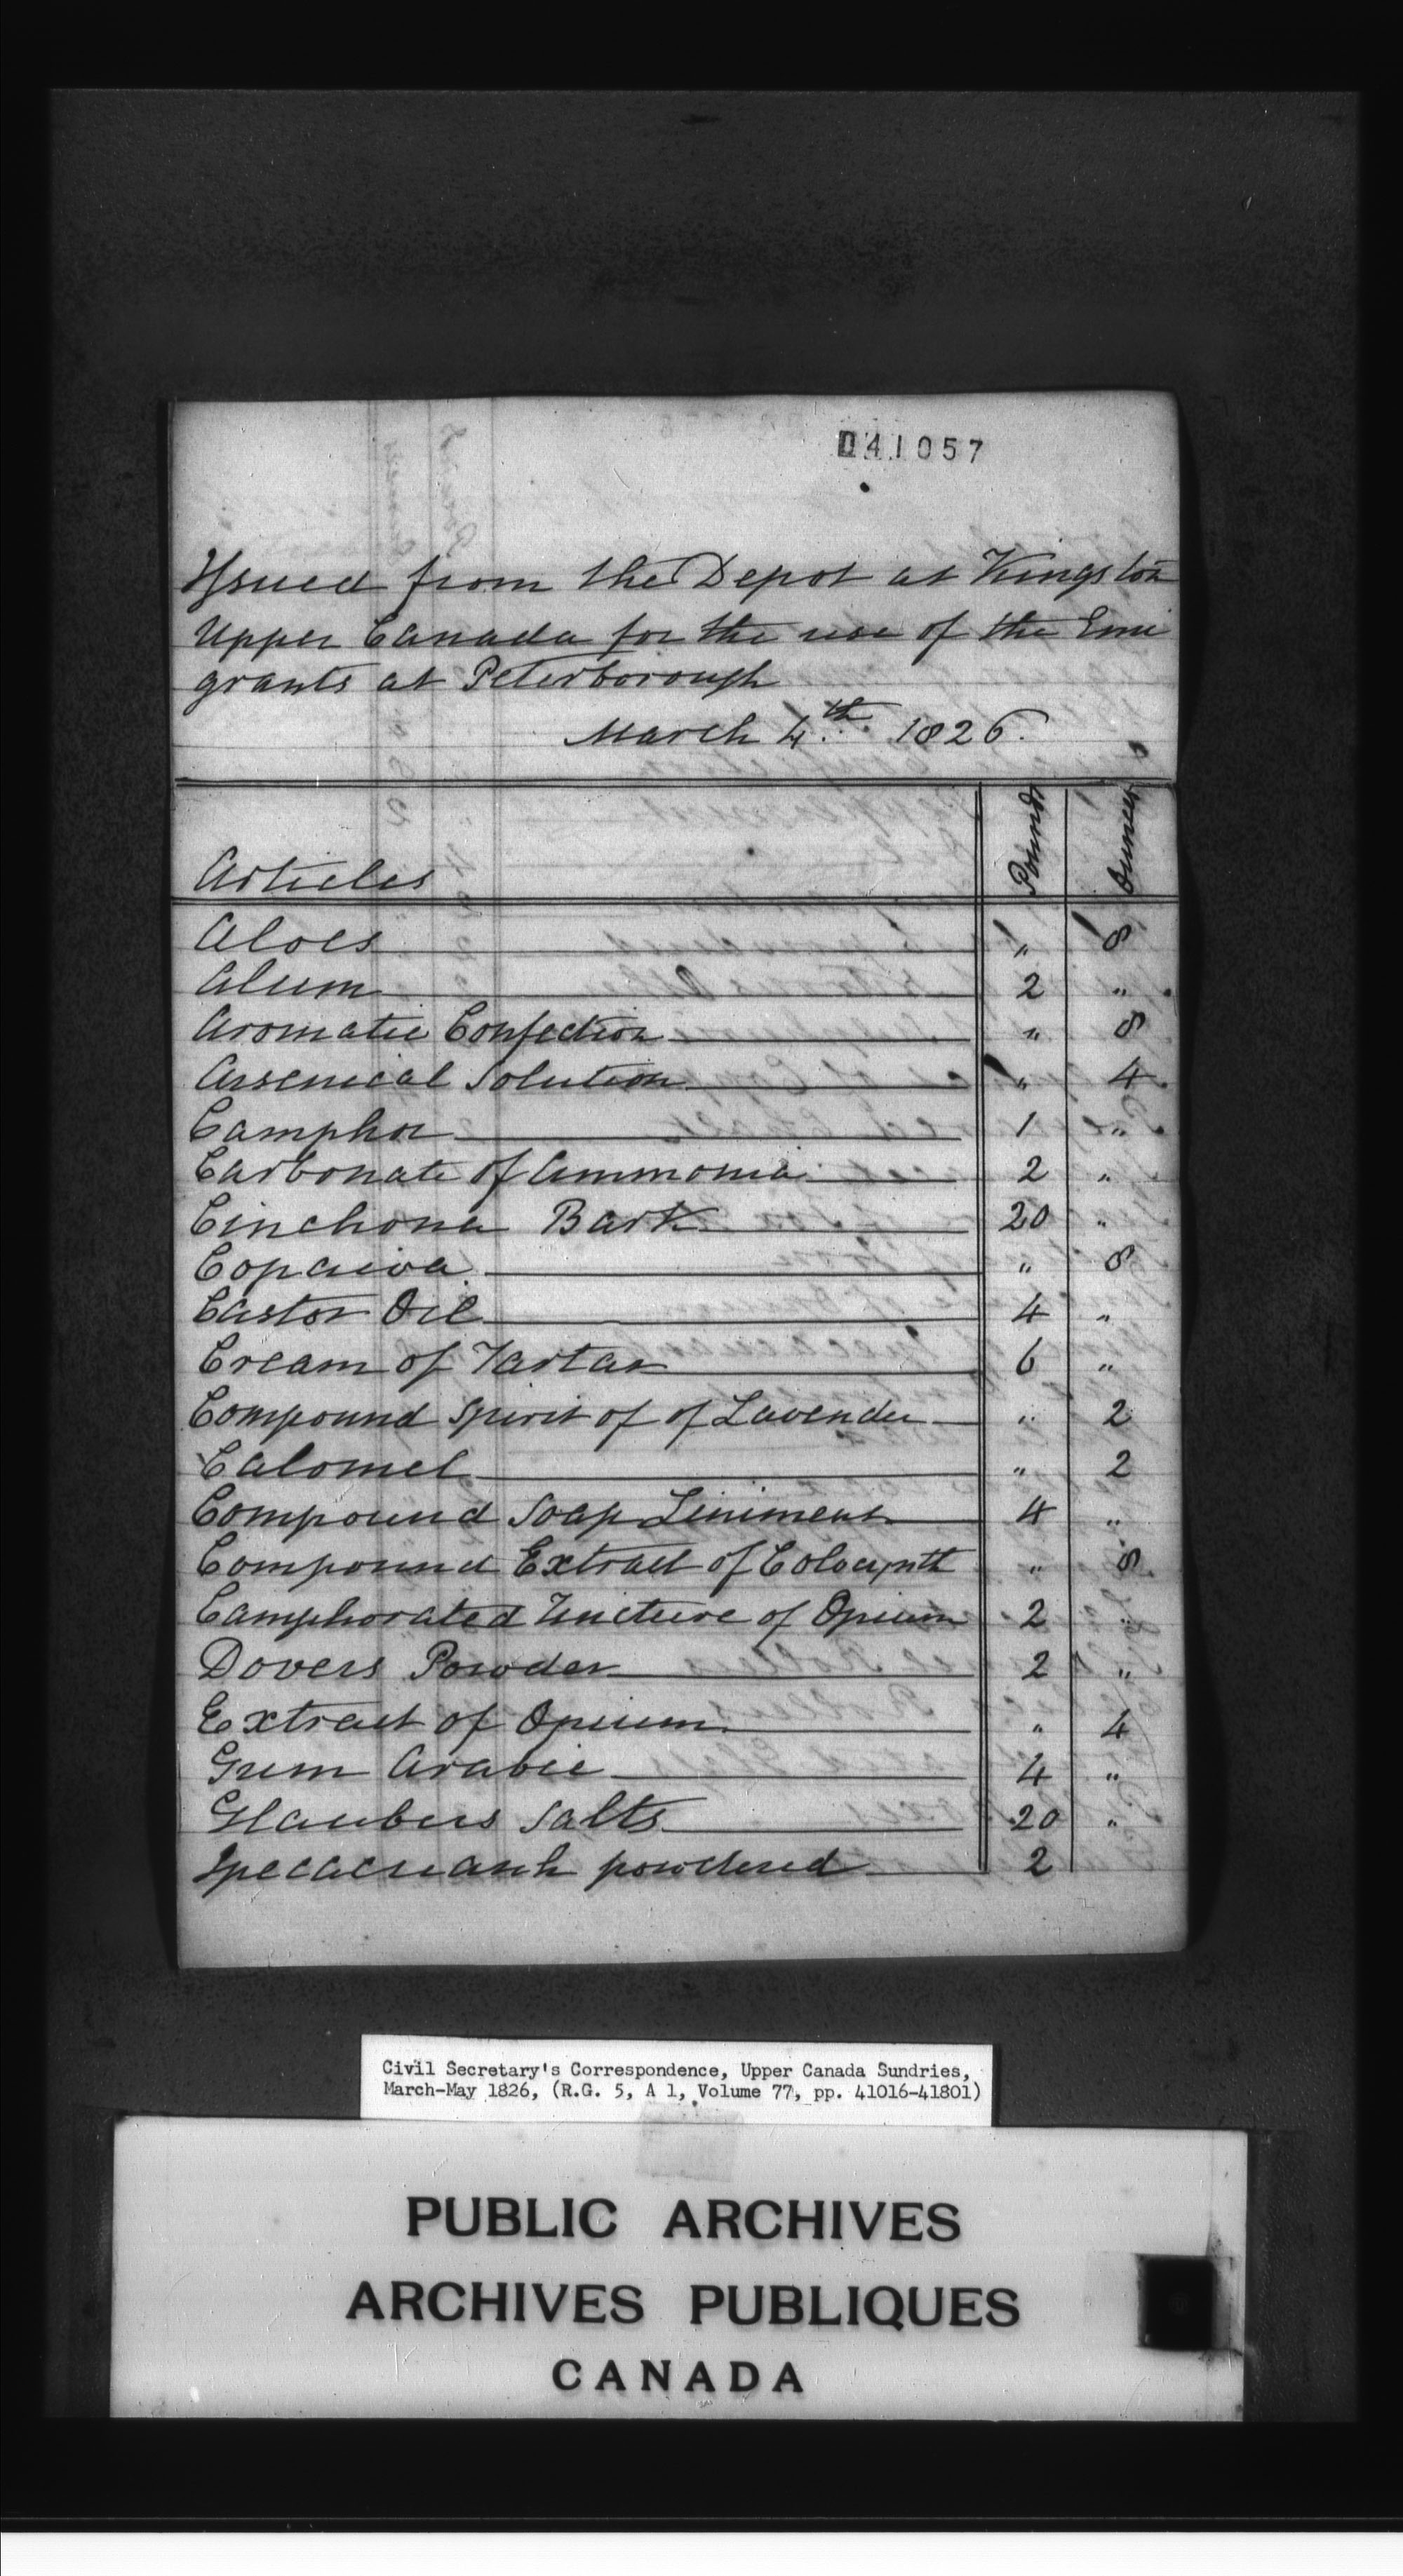 041057
Issued from the Depot at Kingston
Upper Canada for the use of the Emi
grants at Peterborough
March 4th 1826.
Articles Pounds Ounces
Aloes " 8
Alum 2 "
Aromatic Confection " 8
Arsenical Solution " 4
Camphor 1 "
Carbonate of Ammonia 2 "
Cinchona Bark 20 "
Copaiva " 8
Castor Oil 4 "
Cream of Tartar 6 "
Compound Spirit of of Lavender " 2
Calomel " 2
Compound Soap Liniment 4 "
Compound Extract of Colocynth " 8
Camphorated Tincture of Opium 2 "
Dovers Powder 2 "
Extract of Opium " 4
Gum Arabic 4 "
Glaubers Salts 20 "
Ipecacuanh powdered 2
Civil Secretary's Correspondence, Upper Canada Sundries,
March-May 1826, (R.G. 5, A 1, Volume 77, pp. 41016-41801)
PUBLIC ARCHIVES
ARCHIVES PUBLIQUES
CANADA